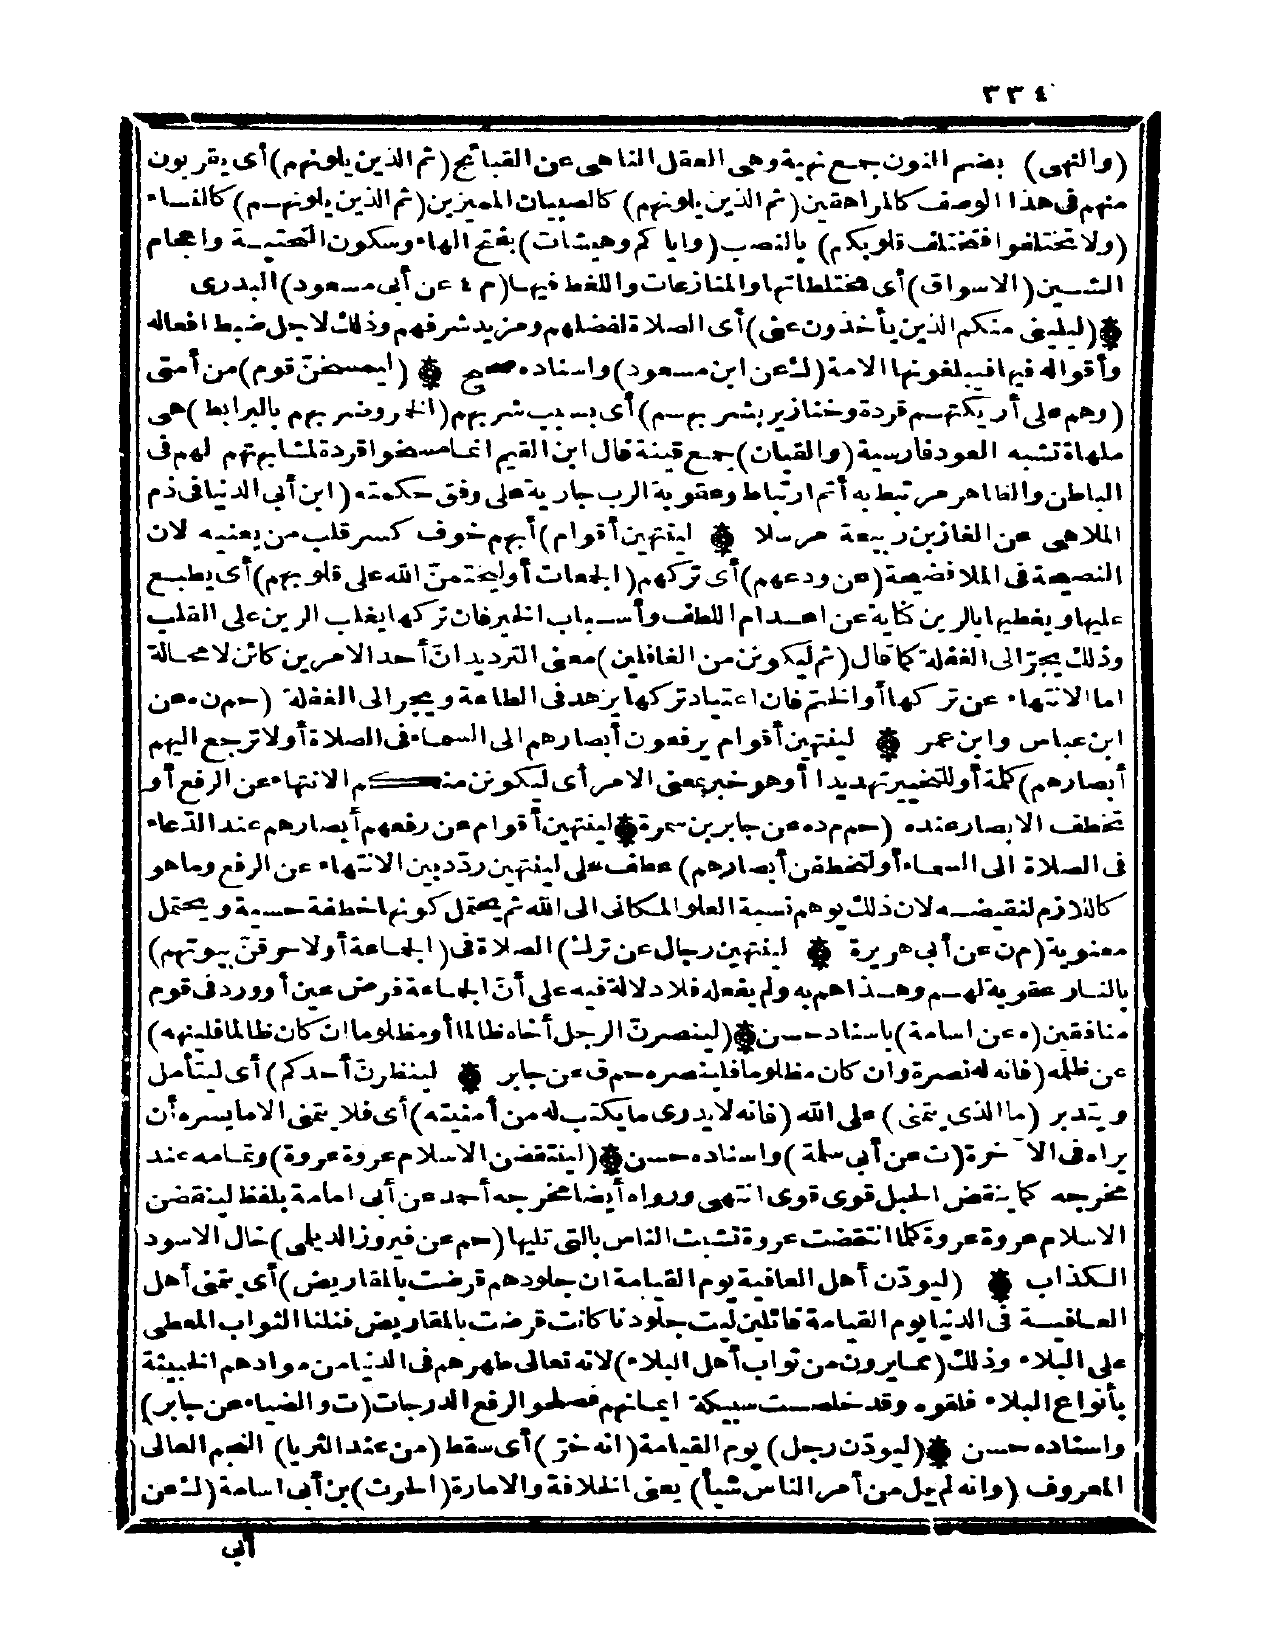 ٣٣٤
(والنهى) بضم النون جمع نهية وهى العقل الناهى عن القبائح (ثم الذين يلونهم) أى يقربون
منهم فى هذا الوصف كالمراهقين (ثم الذين يلونهم) كالصبيان المميزين (ثم الذين يلونهم) كالنساء
(ولا تختلفوا فتختلف قلوبكم) بالنصب (واياكم وهيشات) بفتح الهاء وسكون التحتية واعجام
الشين (الاسواق) أى مختلطاتها والمنازعات واللغط فيها (م ٤ عن أبى مسعود) البدرى
۞ (ليلينى منكم الذين يأخذون عنى) أى الصلاة لفضلهم ومزيد شرفهم وذلك لاجل ضبط افعاله
وأقواله فيها فيبلغونها الامة (ك عن ابن مسعود) واسناده صحيح ۞ (ليمسخن قوم) من أمتى
(وهم على أريكتهم قردة وخنازير بشربهم) أى بسبب شربهم (الخمر وضربهم بالبرابط) هى
ملهاة تشبه العود فارسية (والقيان) جمع قينة قال ابن القيم انما مسخوا قردة لمشابهتهم لهم فى
الباطن والظاهر مرتبط به أتم ارتباط وعقوبة الرب جارية على وفق حكمته (ابن أبى الدنيا فى ذم
الملاهى عن الغاز بن ربيعة مرسلا ۞ لينتهين أقوام) أبهم خوف كسر قلب من يعنيه لان
النصيحة فى الملا فضيحة (عن ودعهم) أى تركهم (الجمعات أو ليختمن الله على قلوبهم) أى يطبع
عليها ويغطيها بالرين كناية عن اعدام اللطف وأسباب الخير فان تركها يغلب الرين على القلب
وذلك يجر الى الغفلة كما قال (ثم ليكونن من الغافلين) معنى الترديد ان أحد الامرين كائن لا محالة
اما الانتهاء عن تركها أو الختم فان اعتياد تركها يزهد فى الطاعة ويجر الى الغفلة (حم ن ه عن
ابن عباس وابن عمر ۞ لينتهين أقوام يرفعون أبصارهم الى السماء فى الصلاة أو لا ترجع اليهم
أبصارهم) كلة أو للتخيير تهديدا أو هو خبر بمعنى الامر أى ليكونن منكم الانتهاء عن الرفع أو
تخطف الابصار عنده (حم م د ه عن جابر بن سمرة ۞ لينتهين أقوام عن رفعهم أبصارهم عند الدعاء
فى الصلاة الى السماء أو لتخطفن أبصارهم) عطف على لينتهين ردد بين الانتهاء عن الرفع وما هو
كاللازم لنقيضه لان ذلك يوهم نسبة العلو المكانى الى الله ثم يحتمل كونها خطفة حسية ويحتمل
معنوية (م ن عن أبى هريرة ۞ لينتهين رجال عن ترك) الصلاة فى (الجماعة أو لاحرقن بيوتهم)
بالنار عقوبة لهم وهذا هم به ولم يفعله فلا دلالة فيه على أن الجماعة فرض عين أو ورد فى قوم
منافقين (ه عن اسامة) باسناد حسن ۞ (لينصرن الرجل أخاه ظالما أو مظلوما ان كان ظالما فلينهه)
عن ظلمه (فانه له نصرة وان كان مظلوما فلينصره حم ق عن جابر ۞ لينظرن أحدكم) أى ليتأمل
ويتدبر (ما الذى يتمنى) على الله (فانه لا يدرى ما يكتب له من أمنيته) أى فلا يتمنى الا ما يسره أن
يراه فى الآخرة (ت عن أبى سلمة) واسناده حسن ۞ (لينتقضن الاسلام عروة عروة) وتمامه عند
مخرجه كما ينقض الحبل قوى قوى انتهى ورواه أيضا مخرجه أحمد عن أبى امامة بلفظ لينقضن
الاسلام عروة عروة كلما انتقضت عروة تشبث الناس بالتى تليها (حم عن فيروز الديلمى) خال الاسود
الكذاب ۞ (ليودن أهل العافية يوم القيامة ان جلودهم قرضت بالمقاريض) أى يتمنى أهل
العافية فى الدنيا يوم القيامة قائلين ليت جلودنا كانت قرضت بالمقاريض فنلنا الثواب المعطى
على البلاء وذلك (مما يرون من ثواب أهل البلاء) لانه تعالى طهرهم فى الدنيا من موادهم الخبيثة
بأنواع البلاء فلقوه وقد خلصت سبيكة ايمانهم فصلحوا لرفع الدرجات (ت والضياء عن جابر)
واسناده حسن ۞ (ليودن رجل) يوم القيامة (انه خر) أى سقط (من عند الثريا) النجم العالى
المعروف (وانه لم يل من أمر الناس شيأ) يعنى الخلافة والامارة (الحرث) بن أبى اسامة (ك عن
أبى